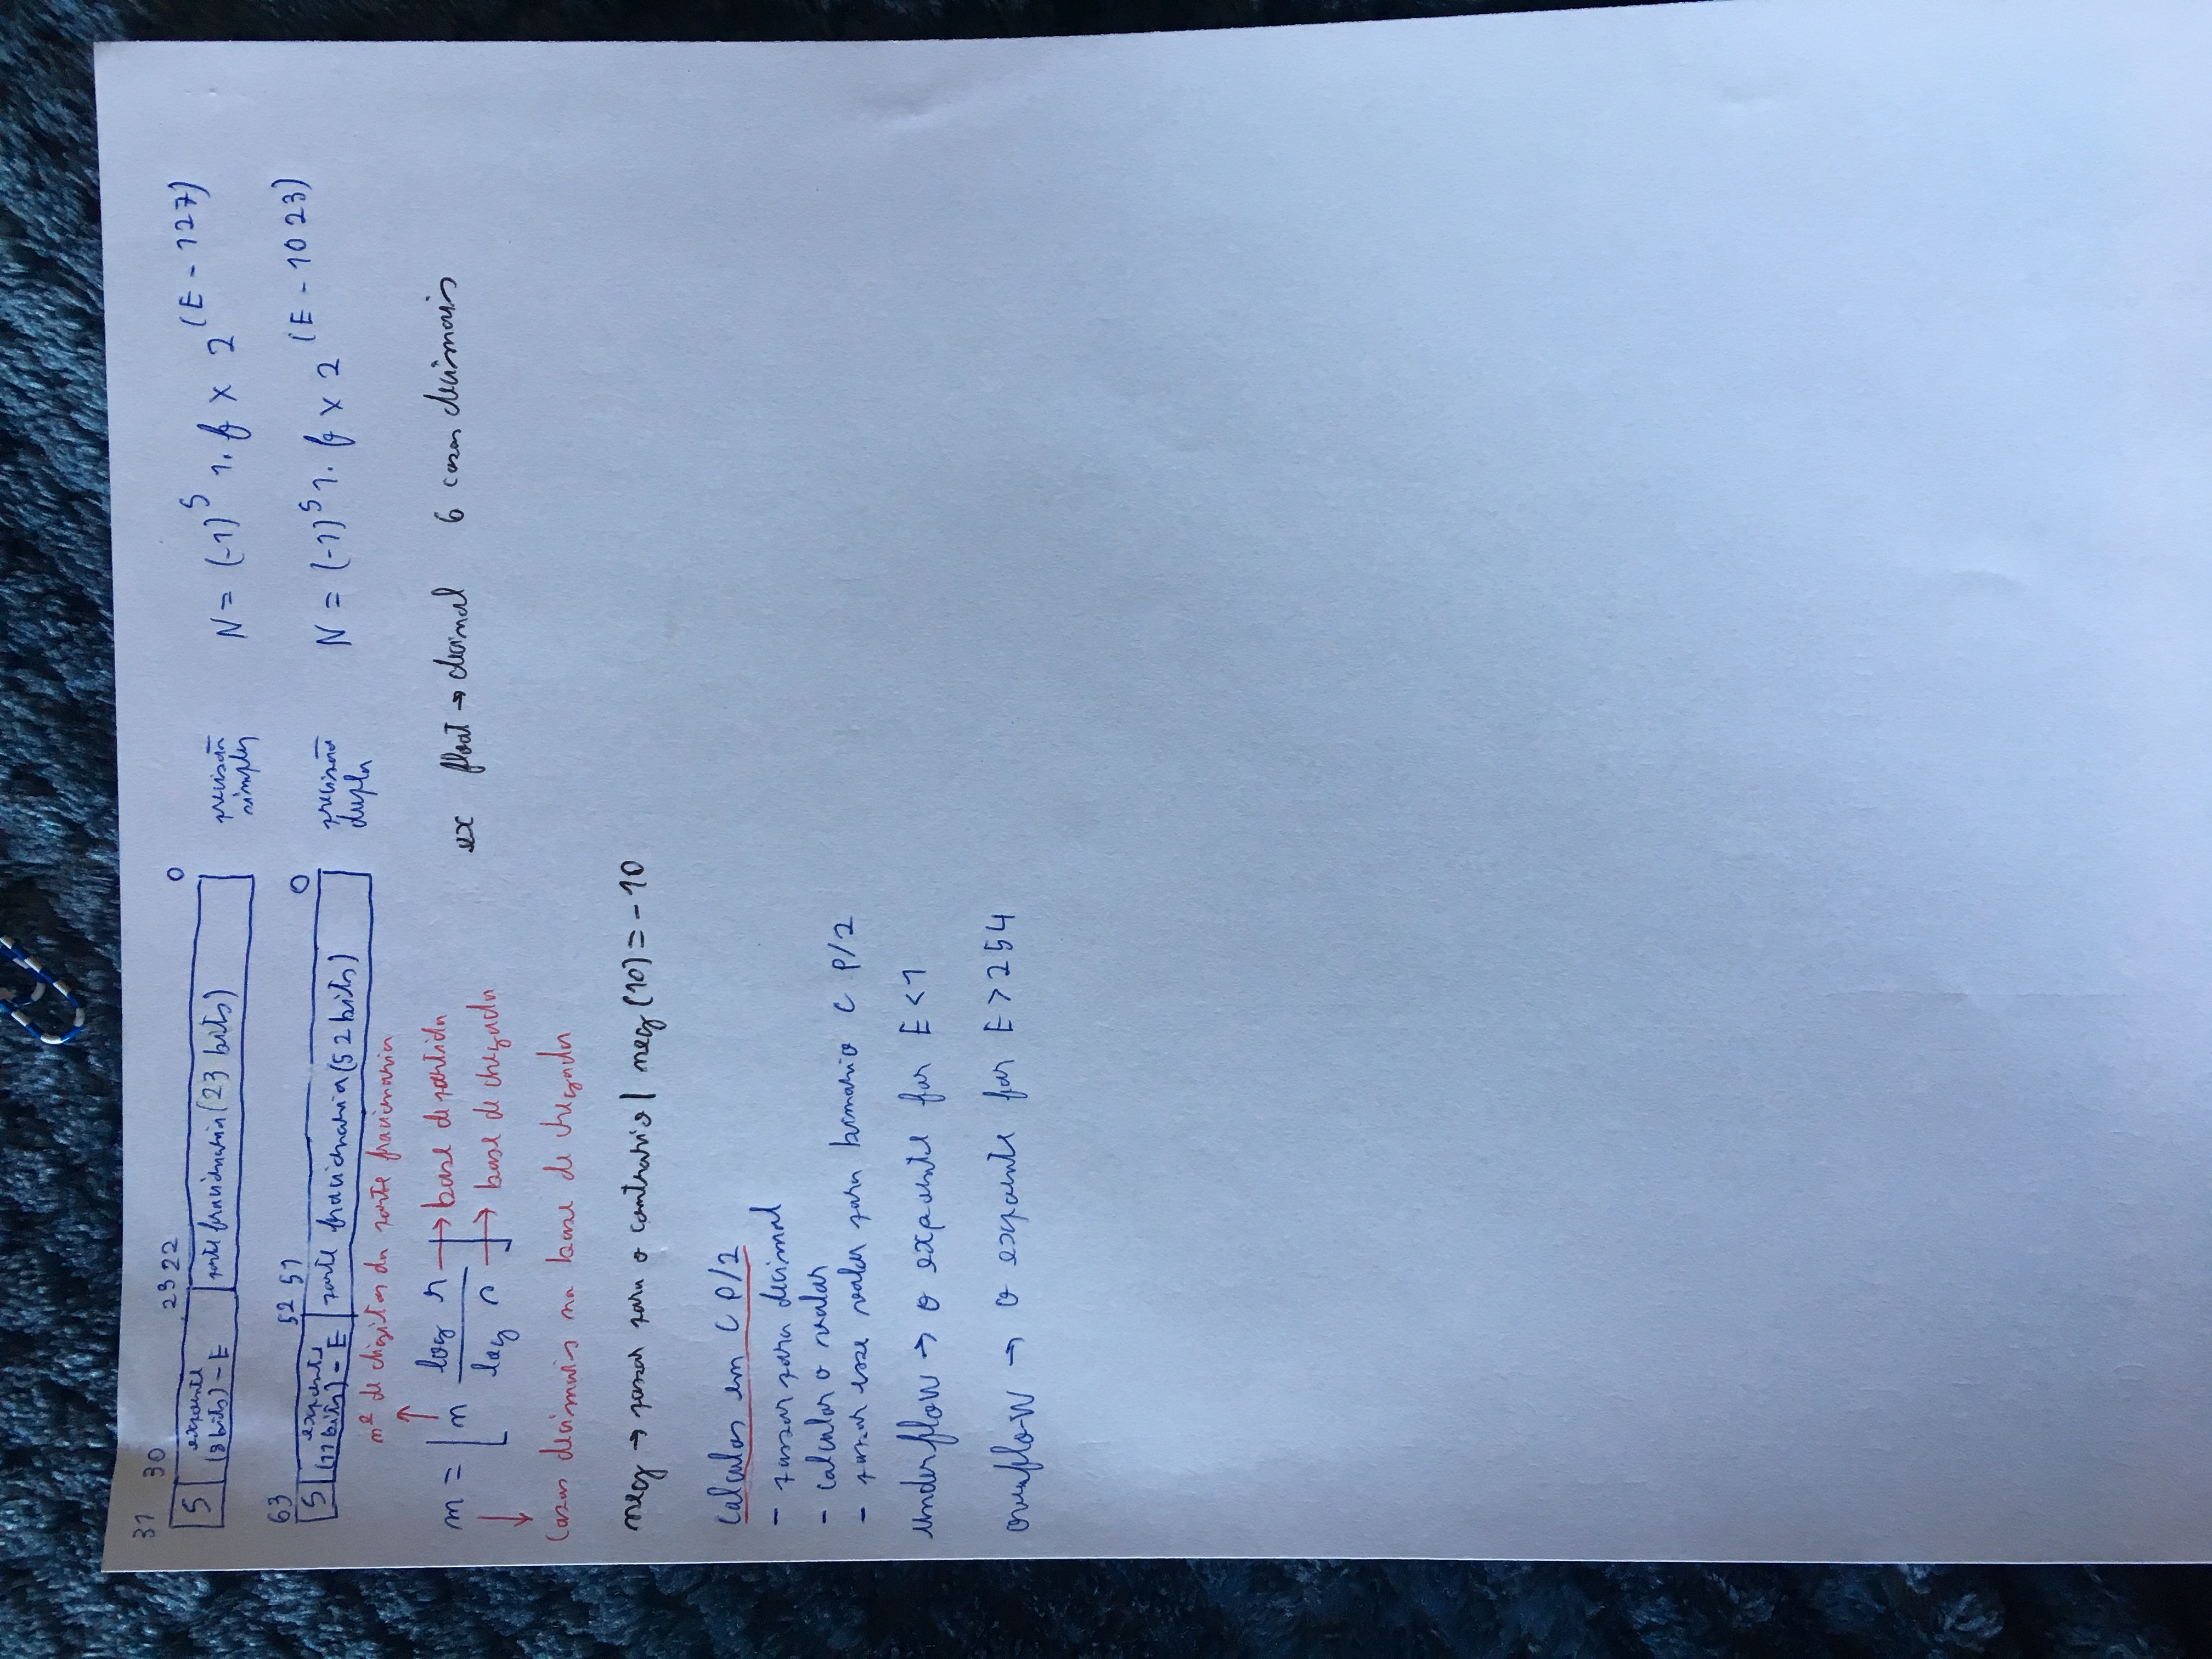 31 30 23 22 0
S expoente (8 bits) - E parte fracionaria (23 bits) precisão simples N = (-1)^S 1. f x 2^(E - 127)
63 52 51 0
S expoente (11 bits) - E parte fracionaria (52 bits) precisão dupla N = (-1)^S 1. f x 2^(E - 1023)
nº de digitos da parte fracionaria
m = ⌊ n log r / log s ⌋
→ base de partida
→ base de chegada
ex float → decimal 6 casas decimais
casas decimais na base de chegada
neg → passar para o contrario | neg (10) = -10
Calculos em C P/2
- passar para decimal
- calcular o valor
- passar esse valor para binario C P/2
underflow → o expoente for E < 1
overflow → o expoente for E > 254